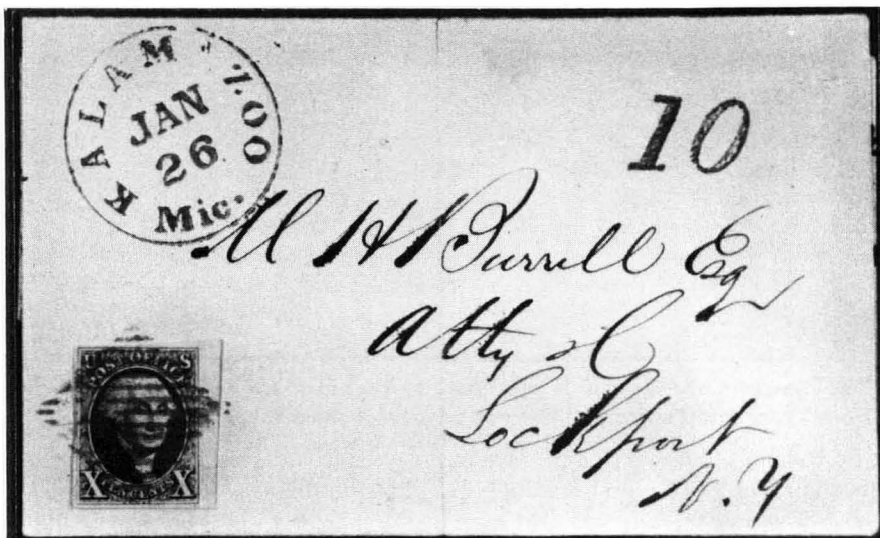 KALAM ZOO
JAN
26
Mic.
10
M H Burrell Esq
Atty &C
Lockport
N.Y
U S
POST OFFICE
X X